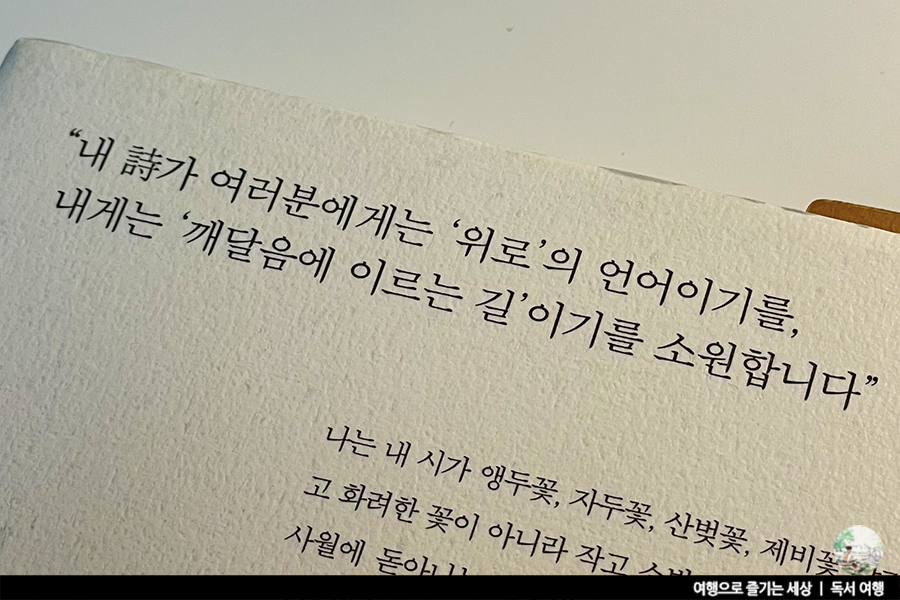 “내 詩가 여러분에게는 ‘위로’의 언어이기를,
내게는 ‘깨달음에 이르는 길’이기를 소원합니다”
나는 내 시가 앵두꽃, 자두꽃, 산벚꽃, 제비꽃
고 화려한 꽃이 아니라 작고
사월에 돋아나는
여행으로 즐기는 세상 | 독서 여행